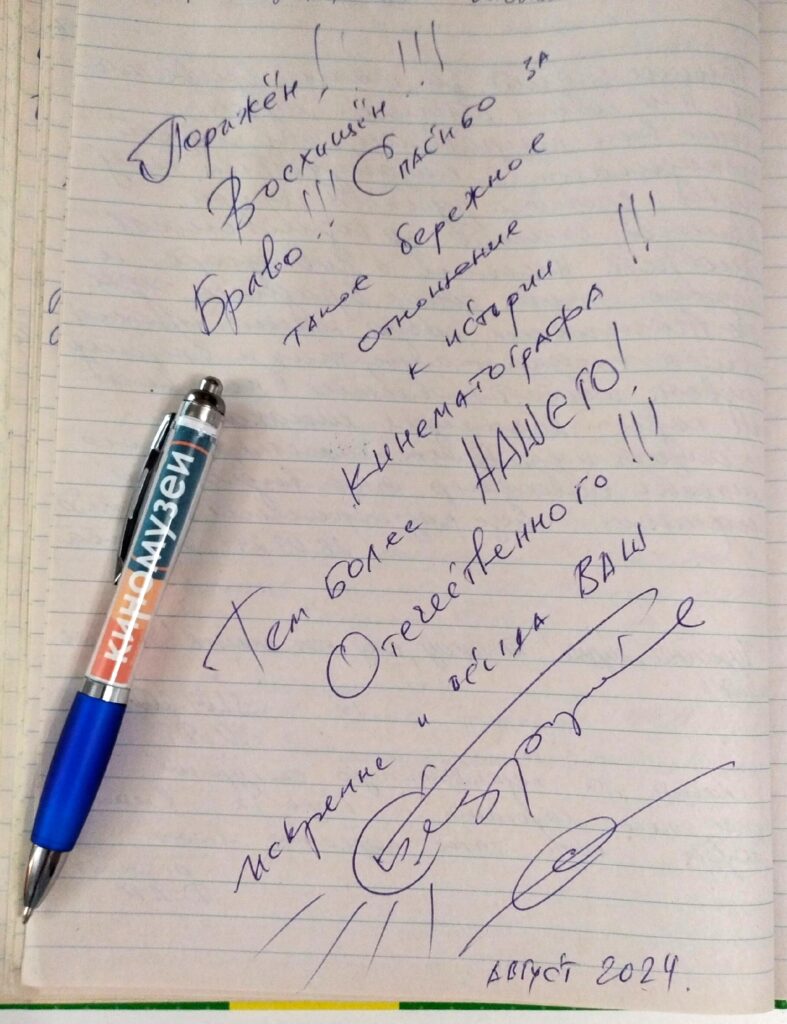 Поражён!!
Восхищён!!!
Браво!!! Спасибо за
такое бережное
отношение
к истории
кинематографа!!!
Тем более НАШЕГО!
Отечественного!!!
искренне и всегда ВАШ
август 2024.
киномузей